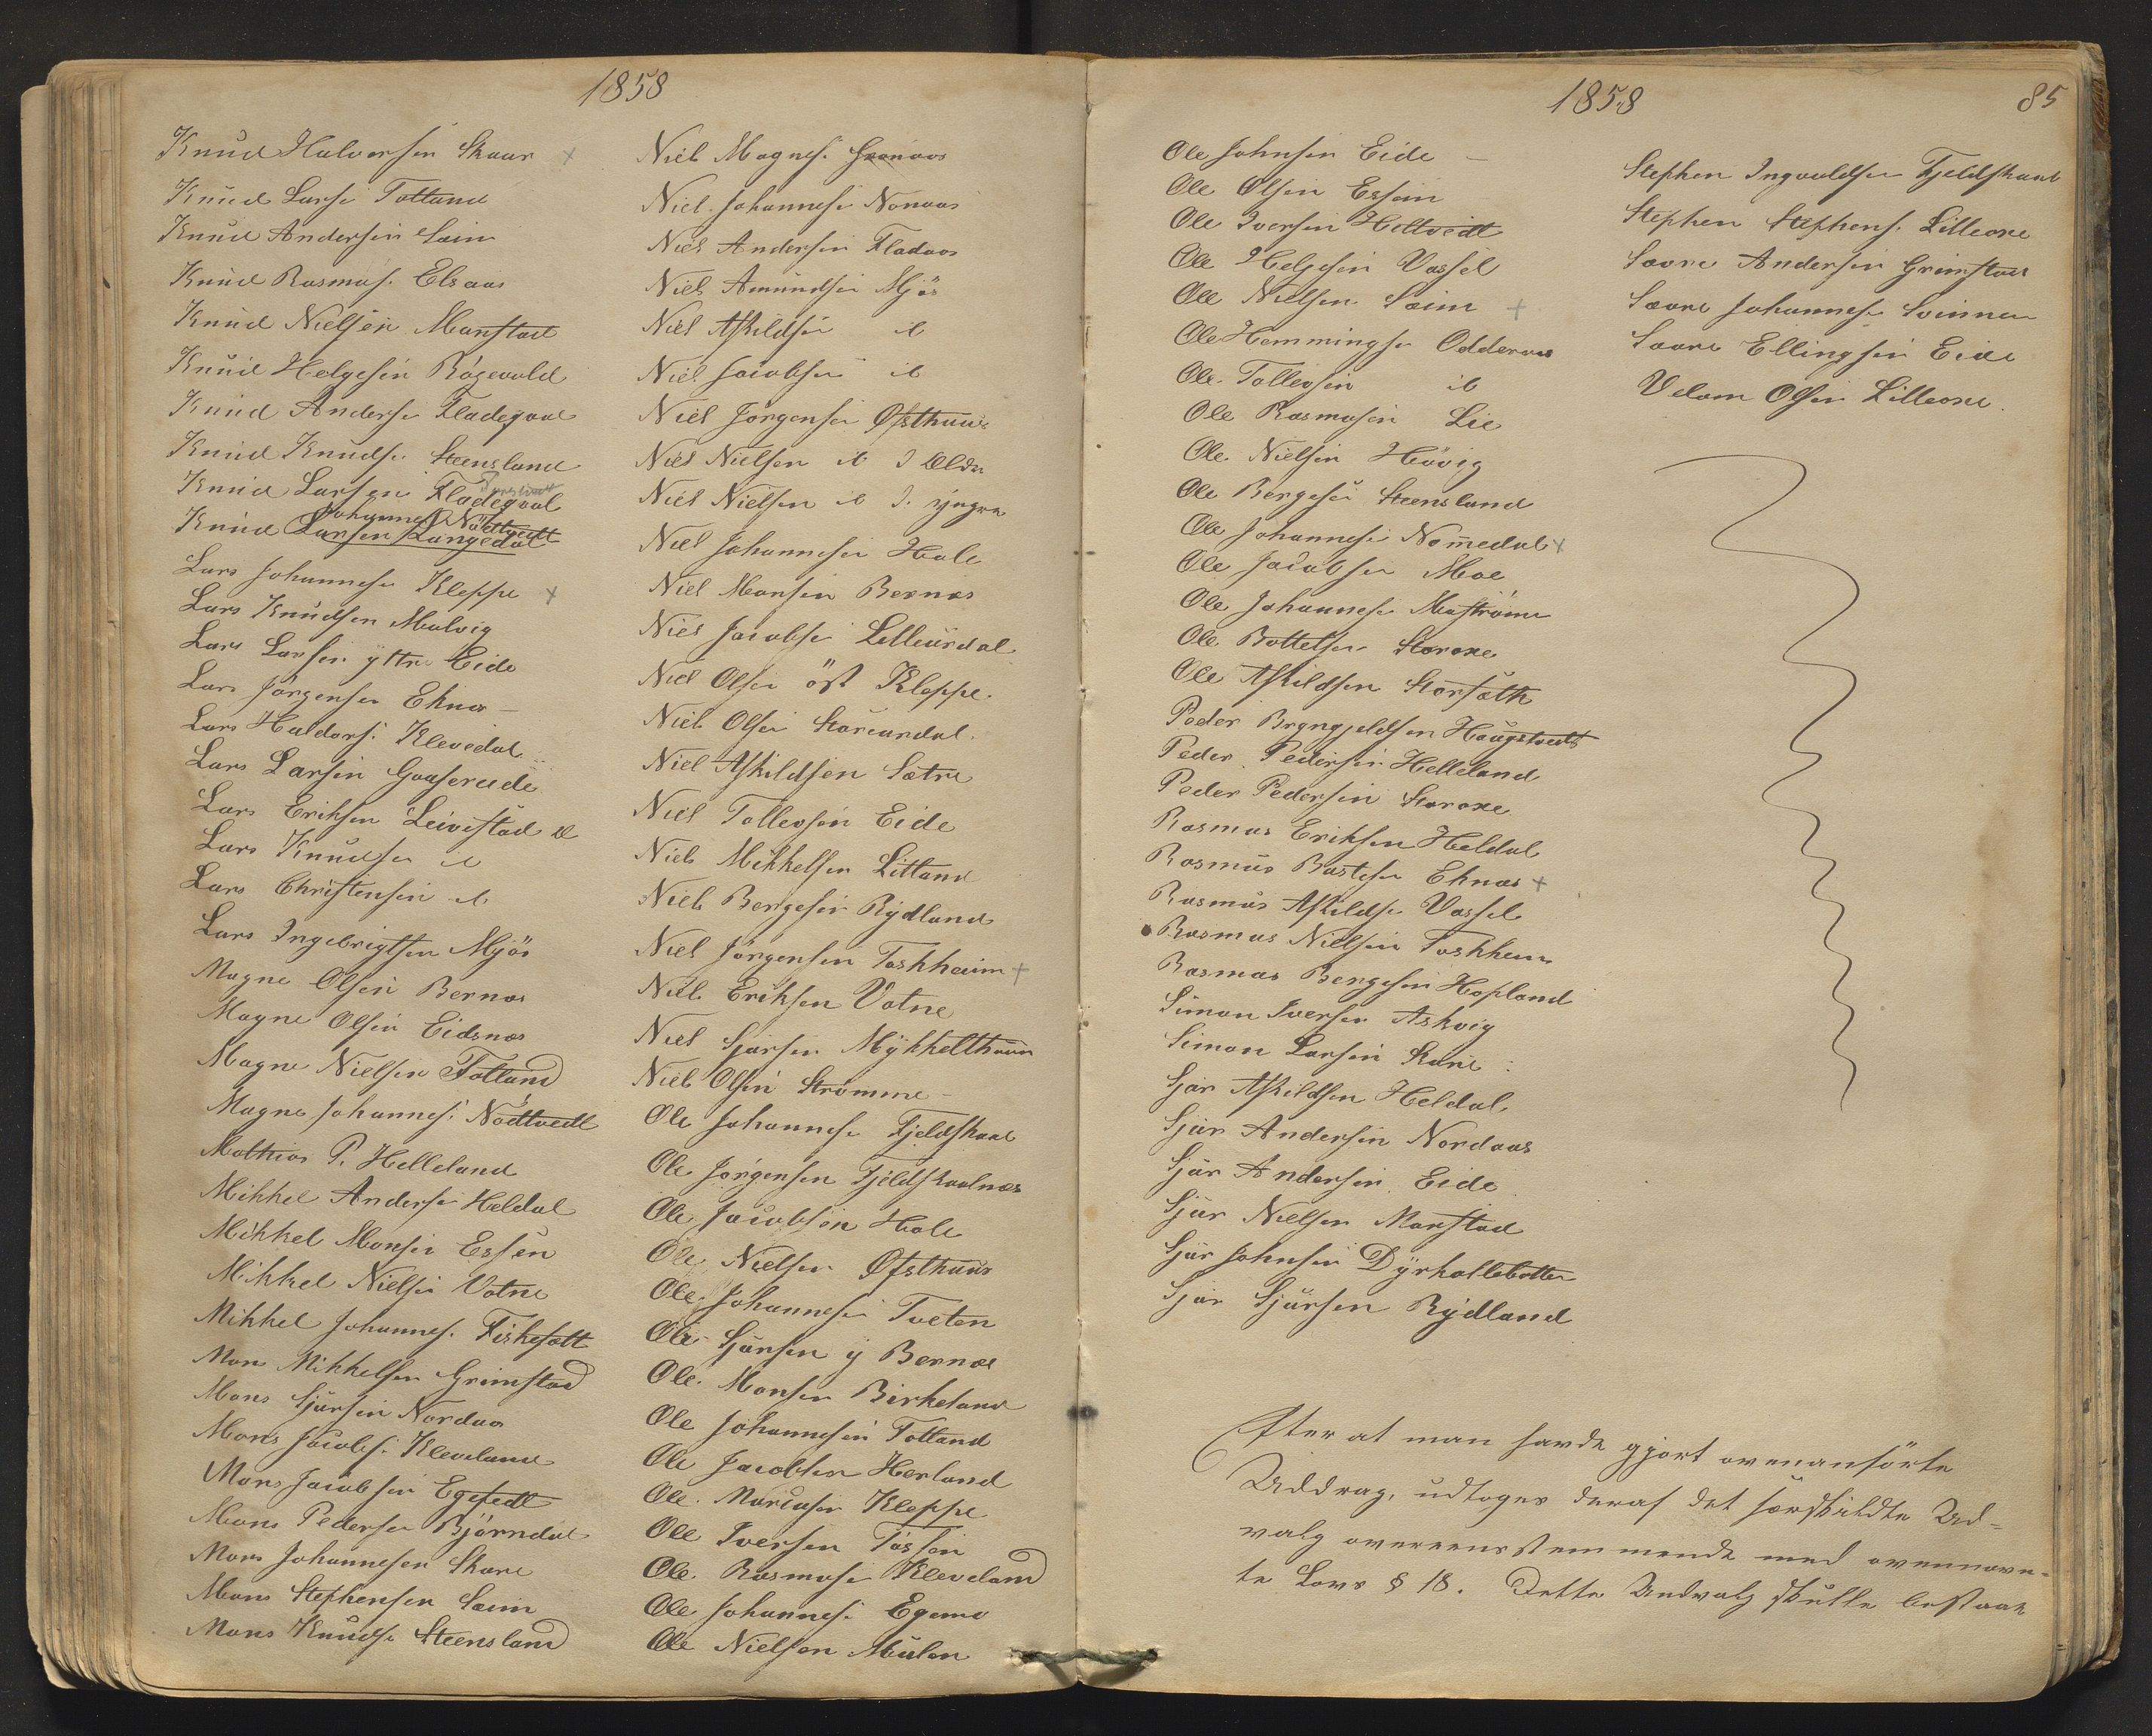 1858
Knud Halvorsen Skaar x
Knud Larse Totland
Knud Andersen Søim
Knud Rasmus. Elsaas
Knud Nielsen Manstad
Knud Helgesen Røgevold
Knud Anderse Fladegaal
Knud Knudse Steensland
Knud Larsen Fladegaal
Johannes Nödtvedt
Knud Larsen Langedal
Lars Johannese Kleppe x
Lars Knudsen Malvig
Lars Larsen yttre Eide
Lars Jörgensen Eknæs –
Lars Haldors. Klevedal
Lars Larsen Gaaserude
Lars Eriksen Leivestad
Lars Knudse d
Lars Christensen d
Lars Ingebrigtsen Mjös
Magne Olsen Bernæs
Magne Olsen Eidsnæs
Magne Nielsen Totland
Magne Johannes. Nödtvedt
Mathias P. Helleland
Mikkel Anderse Heldal
Mikkel Monsen Essen
Mikkel Nielse Votne
Mikkel Johannes. Fiskesætt
Mons Mikkelsen Grimstad
Mons Sjursen Nordaas
Mons Jacobs. Kleveland
Mons Jacobsen Egesedl
Mons Pederse Björndal
Mons Johannesen Skare
Mons Stephensen Søim
Mons Knudse Steensland
Niels Magnes. Grønaas
Niels Johannese Nonaas
Niels Andersen Fladaas
Niels Amundsen Mjös
Niels Askildsen d
Niels Jacobsen d
Niels Jörgensen Øfsthuus
Niels Nielsen d d Eldre
Niels Nielsen d d. yngre
Niels Johannesen Hole
Niels Monsen Bernæs
Niels Jacobse Lilleurdal
Niels Olsen öst Kleppe.
Niels Olsen Storeurdal.
Niels Askildsen Sætre
Niels Tollevsen Eide
Niels Mikkelsen Litland
Niels Bergesen Rydland
Niels Jörgensen Toskheim +
Niels Eriksen Votne
Niels Sjursen Mykkelthuun
Niels Olsen Strömme –
Ole Johannese Fjeldskaal
Ole Jørgensen Fjeldskaalnæs
Ole Jacobsen Hole
Ole Nielsen Øfsthuus
Ole Johannese Tveten
Ole Sjursen y Bernæs
Ole Monsen Birkeland
Ole Johannesen Totland
Ole Jacobsen Herland
Ole Marcusen Kleppe
Ole Iversen Tøssen
Ole Rasmuse Kleveland
Ole Johannes. Egemo
Ole Nielsen Mulen
1858
85
Ole Johnsen Eide –
Ole Olsen Essen
Ole Iversen Heltvedt
Ole Helgesen Vassel
Ole Nielsen Søim +
Ole Hemmingse Odderaas
Ole Tollevsen d
Ole Rasmusen Lie
Ole Nielsen Hövig
Ole Bergesen Steensland
Ole Johannese Nom̄edal x
Ole Jacobsen Moe
Ole Johannese Maströme
Ole Bottelsen Storoxe
Ole Askildsen Storsæth
Peder Bryngjeldsen Haugstvedt
Peder Pedersen Helleland
Peder Pedersen Storoxe
Rasmus Eriksen Heldal
Rasmus Bastese Eknæs +
Rasmus Askildse Vassel
Rasmus Nielsen Toskheim
Rasmus Bergesen Hopland
Simon Iversen Askvig
Simon Larsen Rane
Sjur Askildsen Heldal
Sjur Andersen Nordaas
Sjur Andersen Eide
Sjur Nielsen Manstad
Sjur Johnsen Dyrkollebotten
Sjur Sjursen Rydland
Stephen Ingvaldsen Fjeldskaal
Stephen Stephens. Lilleoxe
Saave Andersen Grimstad
Saave Johannese Svinnen
Saave Ellingsen Eide
Velom Olsen Lilleoxe.
Efter at man havde gjort ovenanförte
Uddrag, udtoges deraf det særskildte Ud-
valg overeensstemmende med ovennævn-
te Lovs § 18. Dette Undvalg skulle bestaae